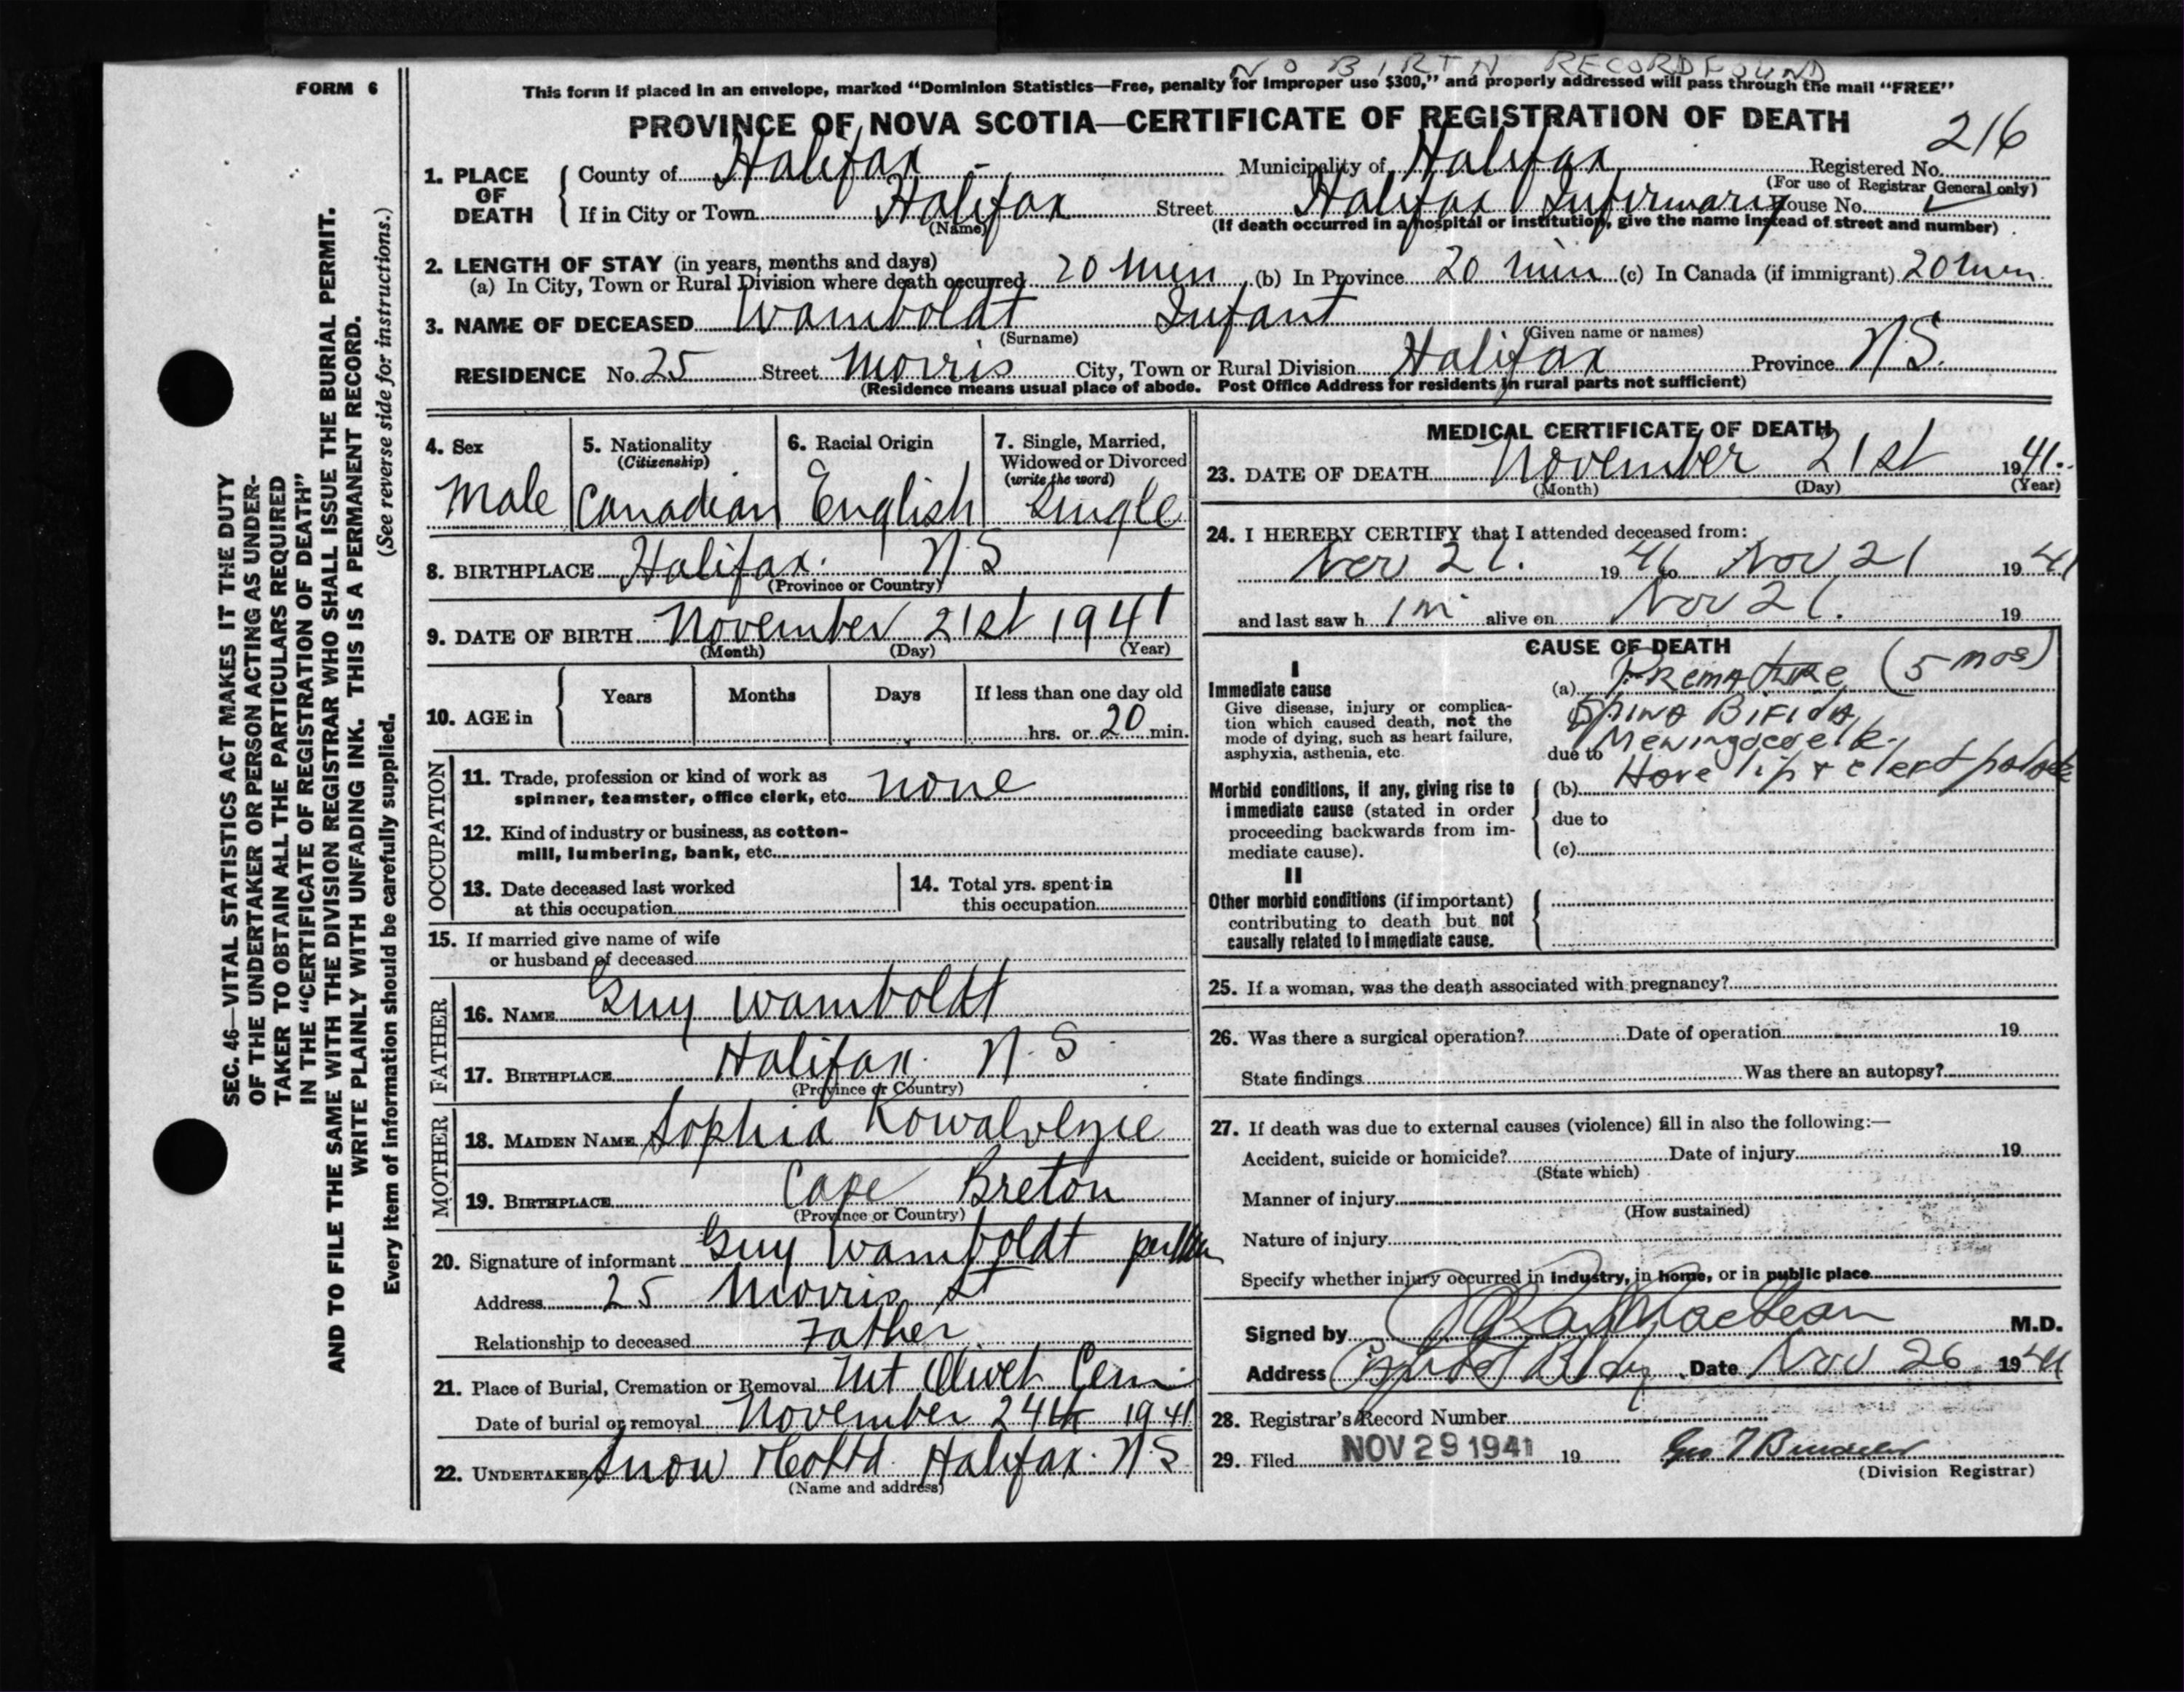 NO BIRTH RECORD FOUND
FORM 6
This form if placed in an envelope, marked "Dominion Statistics—Free, penalty for improper use $300," and properly addressed will pass through the mail "FREE"
PROVINCE OF NOVA SCOTIA—CERTIFICATE OF REGISTRATION OF DEATH
216
1. PLACE OF DEATH
County of Halifax Municipality of Halifax Registered No.
(For use of Registrar General only)
If in City or Town Halifax Street Halifax Infirmary House No.
(Name) (If death occurred in a hospital or institution, give the name instead of street and number)
2. LENGTH OF STAY (in years, months and days)
(a) In City, Town or Rural Division where death occurred 20 min (b) In Province 20 min (c) In Canada (if immigrant) 20 min
3. NAME OF DECEASED Wamboldt Infant
(Surname) (Given name or names)
RESIDENCE No. 25 Street Morris City, Town or Rural Division Halifax Province N.S.
(Residence means usual place of abode. Post Office Address for residents in rural parts not sufficient)
4. Sex
Male
5. Nationality
(Citizenship)
Canadian
6. Racial Origin
English
7. Single, Married,
Widowed or Divorced
(write the word)
Single
8. BIRTHPLACE Halifax. N.S
(Province or Country)
9. DATE OF BIRTH November 21st 1941
(Month) (Day) (Year)
10. AGE in
Years Months Days If less than one day old
hrs. or 20 min.
OCCUPATION
11. Trade, profession or kind of work as
spinner, teamster, office clerk, etc. none
12. Kind of industry or business, as cotton-
mill, lumbering, bank, etc.
13. Date deceased last worked
at this occupation
14. Total yrs. spent in
this occupation
15. If married give name of wife
or husband of deceased
FATHER
16. NAME Guy Wamboldt
17. BIRTHPLACE Halifax. N.S.
(Province or Country)
MOTHER
18. MAIDEN NAME Sophia
19. BIRTHPLACE Cape Breton
(Province or Country)
20. Signature of informant Guy Wamboldt
Address 25 Morris St
Relationship to deceased Father
21. Place of Burial, Cremation or Removal Mt Olivet Cem
Date of burial or removal November 24th 1941
22. UNDERTAKER Snow & Co Ltd. Halifax. N.S
(Name and address)
MEDICAL CERTIFICATE OF DEATH
23. DATE OF DEATH November 21st 1941.
(Month) (Day) (Year)
24. I HEREBY CERTIFY that I attended deceased from:
Nov 21. 1941 to Nov 21 1941
and last saw h im alive on Nov 21. 19
CAUSE OF DEATH
I
Immediate cause
Give disease, injury or complica-
tion which caused death, not the
mode of dying, such as heart failure,
asphyxia, asthenia, etc.
(a) Premature (5 mos)
Spina Bifida
due to Meningocele
Morbid conditions, if any, giving rise to
immediate cause (stated in order
proceeding backwards from im-
mediate cause).
(b) Hare lip & cleft palate
due to
(c)
II
Other morbid conditions (if important)
contributing to death but not
causally related to immediate cause.
25. If a woman, was the death associated with pregnancy?
26. Was there a surgical operation? Date of operation 19
State findings Was there an autopsy?
27. If death was due to external causes (violence) fill in also the following:—
Accident, suicide or homicide? Date of injury 19
(State which)
Manner of injury
(How sustained)
Nature of injury
Specify whether injury occurred in industry, in home, or in public place
Signed by MacLean M.D.
Address Bldg Date Nov 26 1941
28. Registrar's Record Number
29. Filed NOV 29 1941 19
(Division Registrar)
SEC. 46—VITAL STATISTICS ACT MAKES IT THE DUTY
OF THE UNDERTAKER OR PERSON ACTING AS UNDER-
TAKER TO OBTAIN ALL THE PARTICULARS REQUIRED
IN THE "CERTIFICATE OF REGISTRATION OF DEATH"
AND TO FILE THE SAME WITH THE DIVISION REGISTRAR WHO SHALL ISSUE THE BURIAL PERMIT.
WRITE PLAINLY WITH UNFADING INK. THIS IS A PERMANENT RECORD.
Every item of information should be carefully supplied. (See reverse side for instructions.)